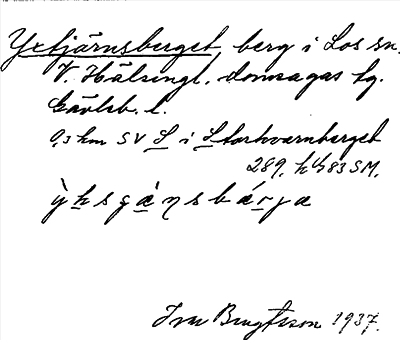 Yxtjärnsberget, berg i Los sn.
V. Hälsingl. domsagas tg.
Gävleb. l.
0,3 km SV S i Storkvarnberget
289, h 483 SM.
ỳksgàṇsbárja
Ivar Bengtsson 1937.